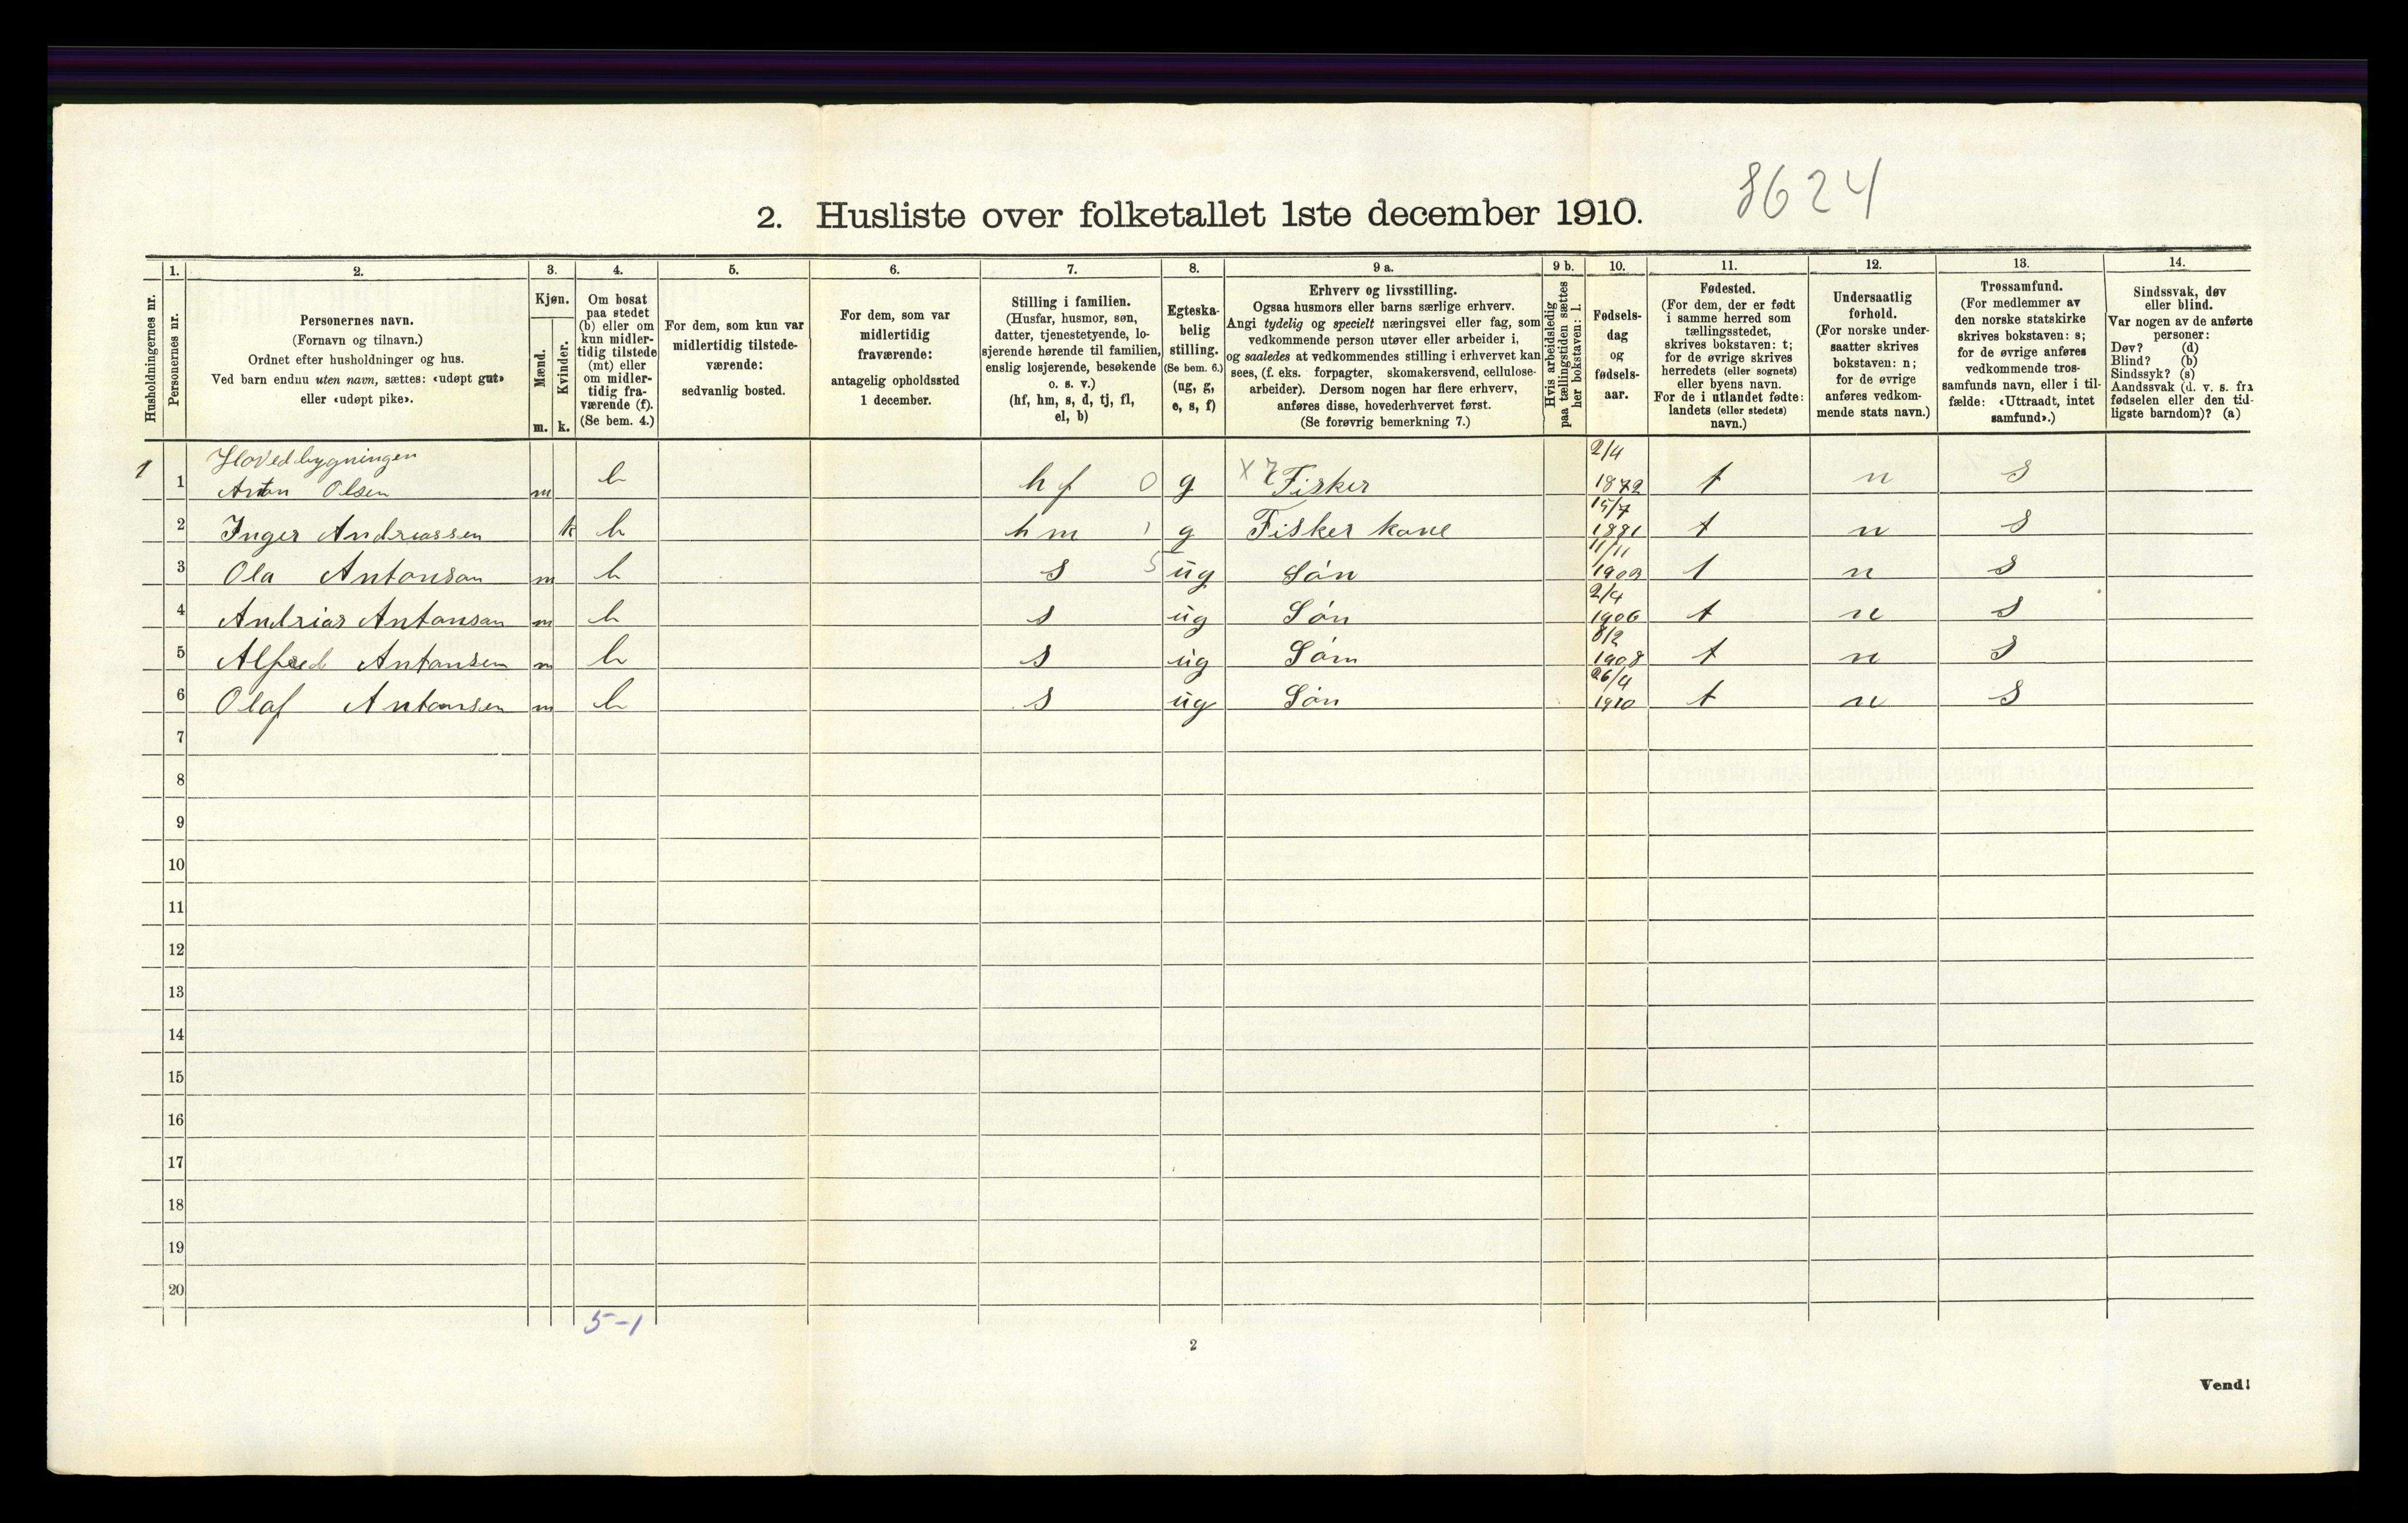 8624
2. Husliste over folketallet 1ste december 1910.
Husholdningernes nr.
1.
Personernes nr.
2.
Personernes navn.
(Fornavn og tilnavn.)
Ordnet efter husholdninger og hus.
Ved barn endnu uten navn, sættes: «udøpt gut»
eller «udøpt pike».
3.
Kjøn.
Mænd.
Kvinder.
m. k.
4.
Om bosat
paa stedet
(b) eller om
kun midler-
tidig tilstede
(mt) eller
om midler-
tidig fra-
værende (f).
(Se bem. 4.)
5.
For dem, som kun var
midlertidig tilstede-
værende:
sedvanlig bosted.
6.
For dem, som var
midlertidig
fraværende:
antagelig opholdssted
1 december.
7.
Stilling i familien.
(Husfar, husmor, søn,
datter, tjenestetyende, lo-
sjerende hørende til familien,
enslig losjerende, besøkende
o. s. v.)
(hf, hm, s, d, tj, fl,
el, b)
8.
Egteska-
belig
stilling.
(Se bem. 6.)
(ug, g,
e, s, f)
9 a.
Erhverv og livsstilling.
Ogsaa husmors eller barns særlige erhverv.
Angi tydelig og specielt næringsvei eller fag, som
vedkommende person utøver eller arbeider i,
og saaledes at vedkommendes stilling i erhvervet kan
sees, (f. eks. forpagter, skomakersvend, cellulose-
arbeider). Dersom nogen har flere erhverv,
anføres disse, hovederhvervet først.
(Se forøvrig bemerkning 7.)
9 b.
Hvis arbeidsledig
paa tællingstiden sættes
her bokstaven: l.
10.
Fødsels-
dag
og
fødsels-
aar.
11.
Fødested.
(For dem, der er født
i samme herred som
tællingsstedet,
skrives bokstaven: t;
for de øvrige skrives
herredets (eller sognets)
eller byens navn.
For de i utlandet fødte:
landets (eller stedets)
navn.)
12.
Undersaatlig
forhold.
(For norske under-
saatter skrives
bokstaven: n;
for de øvrige
anføres vedkom-
mende stats navn.)
13.
Trossamfund.
(For medlemmer av
den norske statskirke
skrives bokstaven: s;
for de øvrige anføres
vedkommende tros-
samfunds navn, eller i til-
fælde: «Uttraadt, intet
samfund».)
14.
Sindssvak, døv
eller blind.
Var nogen av de anførte
personer:
Døv? (d)
Blind? (b)
Sindssyk? (s)
Aandssvak (d. v. s. fra
fødselen eller den tid-
ligste barndom)? (a)
Hovedbygningen 2/4
1 1 Anton Olsen m b hf 0 g X 7 Fisker 1872 t n s
15/7
2 Inger Andreassen k b hm 1 g Fisker kone 1881 t n s
11/11
3 Ola Antonsan m b s 5 ug Søn t n s
2/4
4 Andrias Antonsan m b s ug Søn 1906 t n s
8/2
5 Alfred Antonsen m b s ug Søn 1908 t n s
26/4
6 Olaf Antonsen m b s ug Søn 1910 t n s
7
8
9
10
11
12
13
14
15
16
17
18
19
20
5-1
2
Vend!